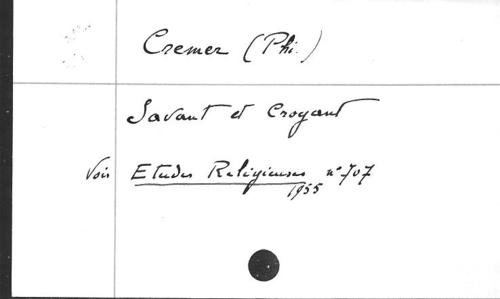 Cremer (Phi.)
Savant et Croyant
Voir Etudes Religieuses n° 707
1955